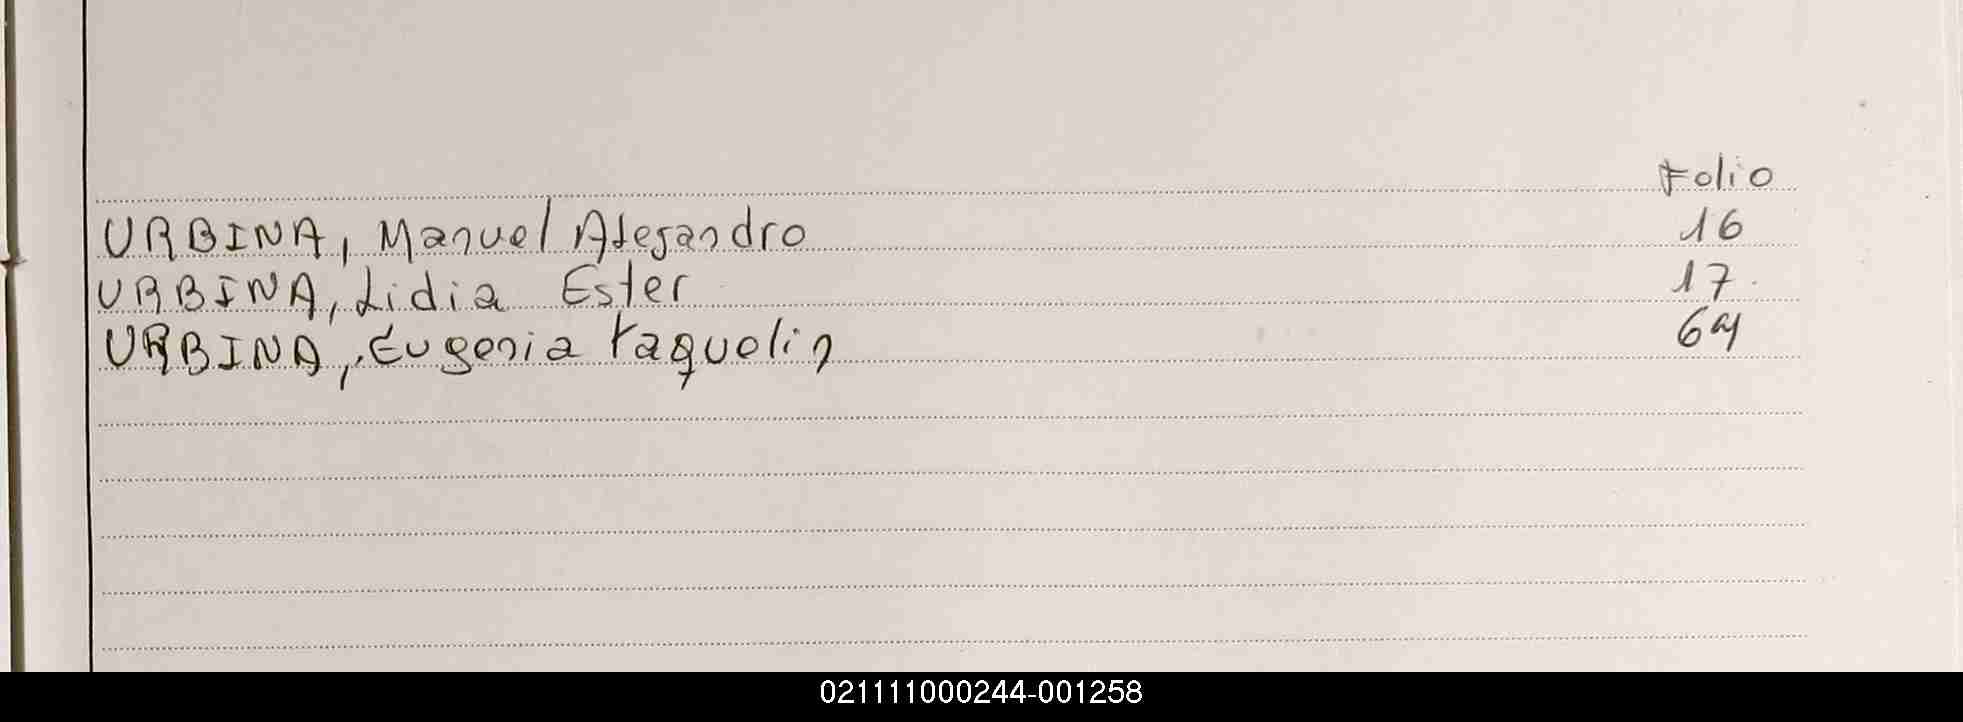 Folio
URBINA, Manuel Alejandro 16
URBINA, Lidia Ester 17
URBINA, Eugenia Yaquelin
021111000244-001258